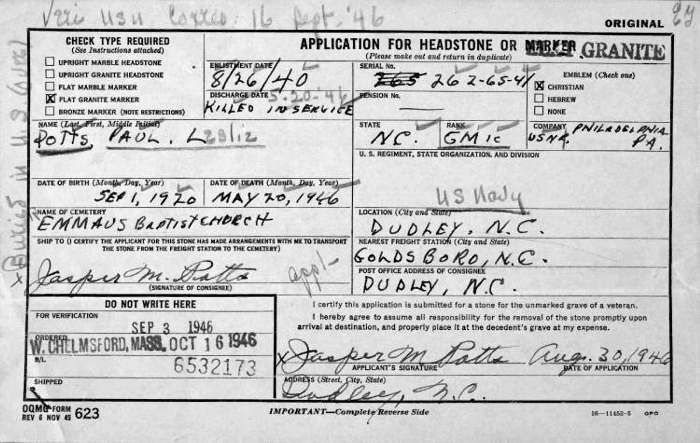 Veri USN Correo: 16 Sept. '46
ORIGINAL
CHECK TYPE REQUIRED
(See instructions attached)
UPRIGHT MARBLE HEADSTONE
UPRIGHT GRANITE HEADSTONE
FLAT MARBLE MARKER
X FLAT GRANITE MARKER
BRONZE MARKER (NOTE RESTRICTIONS)
APPLICATION FOR HEADSTONE OR MARKER GRANITE
(Please make out and return in duplicate)
ENLISTMENT DATE
8/26/40
DISCHARGE DATE 5-20-46
KILLED IN SERVICE
SERIAL No.
265 262-65-41
PENSION No.
EMBLEM (Check one)
X CHRISTIAN
HEBREW
NONE
NAME (Last, First, Middle Initial)
POTTS, PAUL. Leslie
STATE
N.C.
RANK
GM1c
COMPANY
USNR. PHILADELPHIA PA.
U. S. REGIMENT, STATE ORGANIZATION, AND DIVISION
US Navy
DATE OF BIRTH (Month, Day, Year)
SEP 1, 1920
DATE OF DEATH (Month, Day, Year)
MAY 20, 1946
NAME OF CEMETERY
EMMAUS Baptist CHURCH
LOCATION (City and State)
DUDLEY, N.C.
SHIP TO (I CERTIFY THE APPLICANT FOR THIS STONE HAS MADE ARRANGEMENTS WITH ME TO TRANSPORT
THE STONE FROM THE FREIGHT STATION TO THE CEMETERY)
Jasper M. Potts appl-
(SIGNATURE OF CONSIGNEE)
NEAREST FREIGHT STATION (City and State)
GOLDSBORO, N.C.
POST OFFICE ADDRESS OF CONSIGNEE
DUDLEY, N.C.
DO NOT WRITE HERE
FOR VERIFICATION
SEP 3 1946
ORDERED
W. CHELMSFORD, MASS. OCT 16 1946
B/L
6532173
SHIPPED
I certify this application is submitted for a stone for the unmarked grave of a veteran.
I hereby agree to assume all responsibility for the removal of the stone promptly upon
arrival at destination, and properly place it at the decedent's grave at my expense.
x Jasper M Potts Aug. 30, 1946
APPLICANT'S SIGNATURE DATE OF APPLICATION
ADDRESS (Street, City, State)
Dudley, N.C.
OQMG FORM
REV 6 NOV 45 623
IMPORTANT—Complete Reverse Side
16—11452-5 GPO